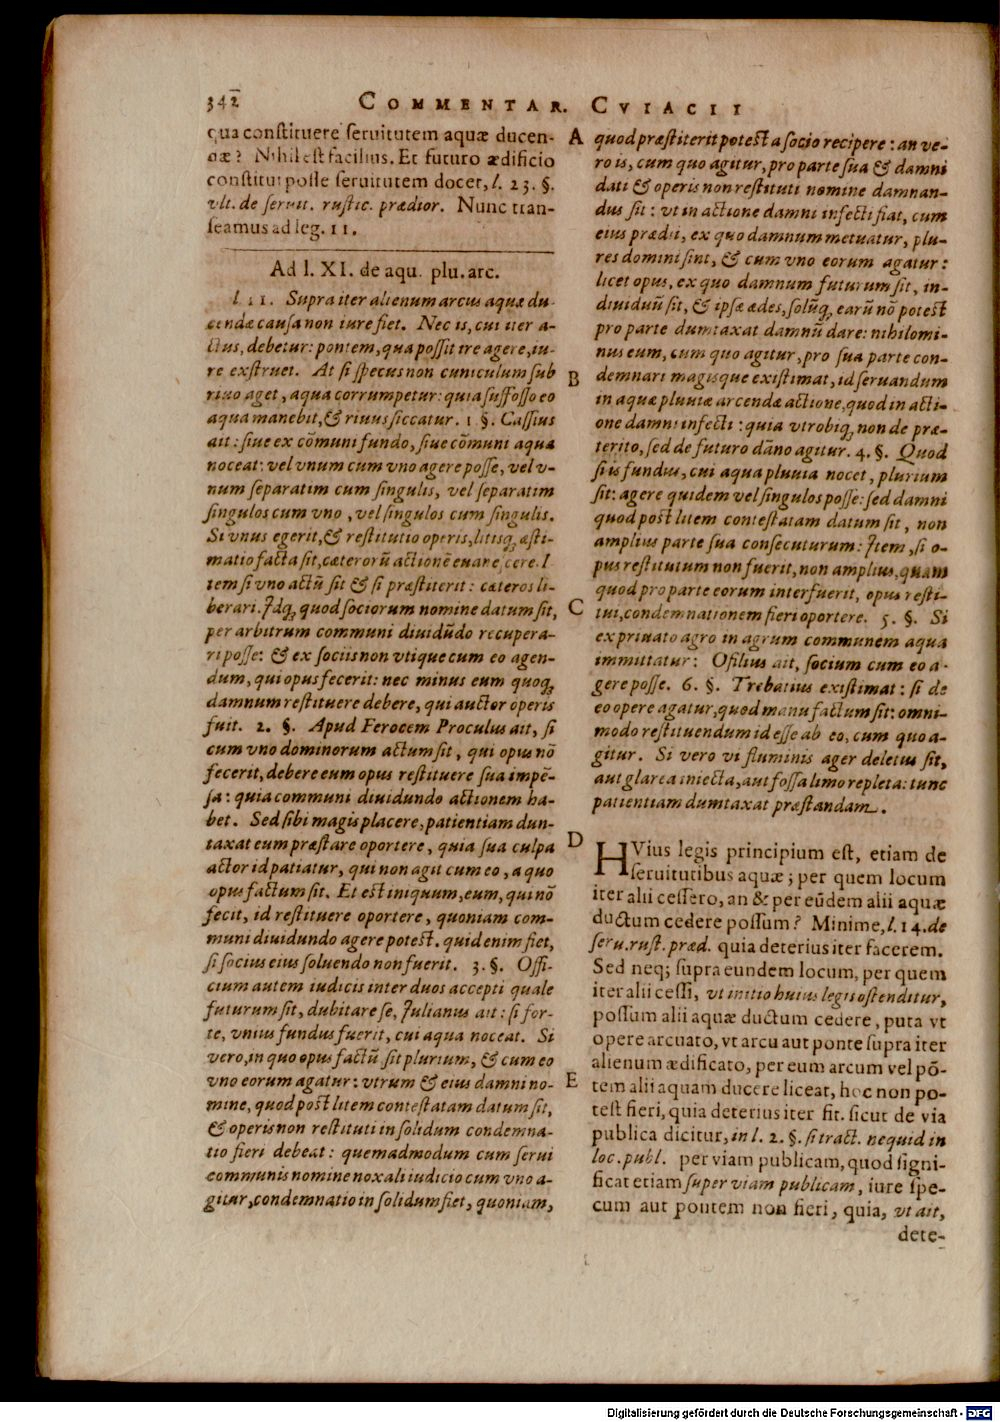 342
COMMENTAR. CVIACII
qua constituere seruitutem aquæ ducen-
dæ? Nihil est facilius. Et futuro ædificio
constitui posse seruitutem docet, l. 23. §.
vlt. de seruit. rustic. prædior. Nunc tran-
seamus ad leg. 11.
Ad l. XI. de aqu. plu. arc.
l. 11. Supra iter alienum arcus aquæ du-
cendæ causa non iure fiet. Nec is, cui iter a-
ctus, debetur: pontem, qua possit ire agere, iu-
re exstruet. At si specus non cuniculum sub
riuo aget, aqua corrumpetur: quia suffosso eo
aqua manebit, & riuus siccatur. 1. §. Cassius
ait: siue ex cõmuni fundo, siue cõmuni aqua
noceat: vel vnum cum vno agere posse, vel v-
num separatim cum singulis, vel separatim
singulos cum vno, vel singulos cum singulis.
Si vnus egerit, & restitutio operis, litisq; æsti-
matio facta sit, cæterorũ actionẽ euanescere. I
tem si vno actũ sit & si præstiterit: cæteros li-
berari. Idq; quod sociorum nomine datum sit,
per arbitrum communi diuidũdo recupera-
ri posse: & ex sociis non vtique cum eo agen-
dum, qui opus fecerit: nec minus eum quoq;
damnum restituere debere, qui auctor operis
fuit. 2. §. Apud Ferocem Proculus ait, si
cum vno dominorum actum sit, qui opus nõ
fecerit, debere eum opus restituere sua impẽ-
sa: quia communi diuidundo actionem ha-
bet. Sed sibi magis placere, patientiam dun-
taxat eum præstare oportere, quia sua culpa
actor id patiatur, qui non agit cum eo, a quo
opus factum sit. Et est iniquum, eum, qui nõ
fecit, id restituere oportere, quoniam com-
muni diuidundo agere potest. quid enim fiet,
si socius eius soluendo non fuerit. 3. §. Offi-
cium autem iudicis inter duos accepti quale
futurum sit, dubitare se, Iulianus ait: si for-
te, vnius fundus fuerit, cui aqua noceat. Si
vero, in quo opus factũ sit plurium, & cum eo
vno eorum agatur: vtrum & eius damni no-
mine, quod post litem contestatam datum sit,
& operis non restituti in solidum condemna-
tio fieri debeat: quemadmodum cum serui
communis nomine noxali iudicio cum vno a-
gitur, condemnatio in solidum fiet, quoniam,
A
quod præstiterit potest a socio recipere: an ve-
ro is, cum quo agitur, pro parte sua & damni
dati & operis non restituti nomine damnan-
dus sit: vt in actione damni infecti fiat, cum
eius prædii, ex quo damnum metuatur, plu-
res domini sint, & cum vno eorum agatur:
licet opus, ex quo damnum futurum sit, in-
diuiduũ sit, & ipsæ ædes, solũq; earũ nõ potest
pro parte dumtaxat damnũ dare: nihilomi-
nus eum, cum quo agitur, pro sua parte con-
B
demnari magisque existimat, id seruandum
in aquæ pluuiæ arcendæ actione, quod in acti-
one damni infecti: quia vtrobiq; non de præ-
terito, sed de futuro dãno agitur. 4. §. Quod
si is fundus, cui aqua pluuia nocet, plurium
sit: agere quidem vel singulos posse: sed damni
quod post litem contestatam datum sit, non
amplius parte sua consecuturum: Item, si o-
pus restitutum non fuerit, non amplius, quam
quod pro parte eorum interfuerit, opus resti-
C
tui, condemnationem fieri oportere. 5. §. Si
ex priuato agro in agrum communem aqua
immittatur: Ofilius ait, socium cum eo a-
gere posse. 6. §. Trebatius existimat: si de
eo opere agatur, quod manu factum sit: omni-
modo restituendum id esse ab eo, cum quo a-
gitur. Si vero vi fluminis ager deletus sit,
aut glarea iniecta, aut fossa limo repleta: tunc
patientiam dumtaxat præstandam.
D
HVius legis principium est, etiam de
seruitutibus aquæ; per quem locum
iter alii cessero, an & per eũdem alii aquæ
ductum cedere possum? Minime, l. 14. de
seru. rust. præd. quia deterius iter facerem.
Sed neq; supra eundem locum, per quem
iter alii cessi, vt initio huius legis ostenditur,
possum alii aquæ ductum cedere, puta vt
opere arcuato, vt arcu aut ponte supra iter
alienum ædificato, per eum arcum vel põ-
E
tem alii aquam ducere liceat, hoc non po-
test fieri, quia deterius iter fit. sicut de via
publica dicitur, in l. 2. §. si tract. ne quid in
loc. publ. per viam publicam, quod signi-
ficat etiam super viam publicam, iure spe-
cum aut pontem non fieri, quia, vt ait,
dete-
Digitalisierung gefördert durch die Deutsche Forschungsgemeinschaft - DFG